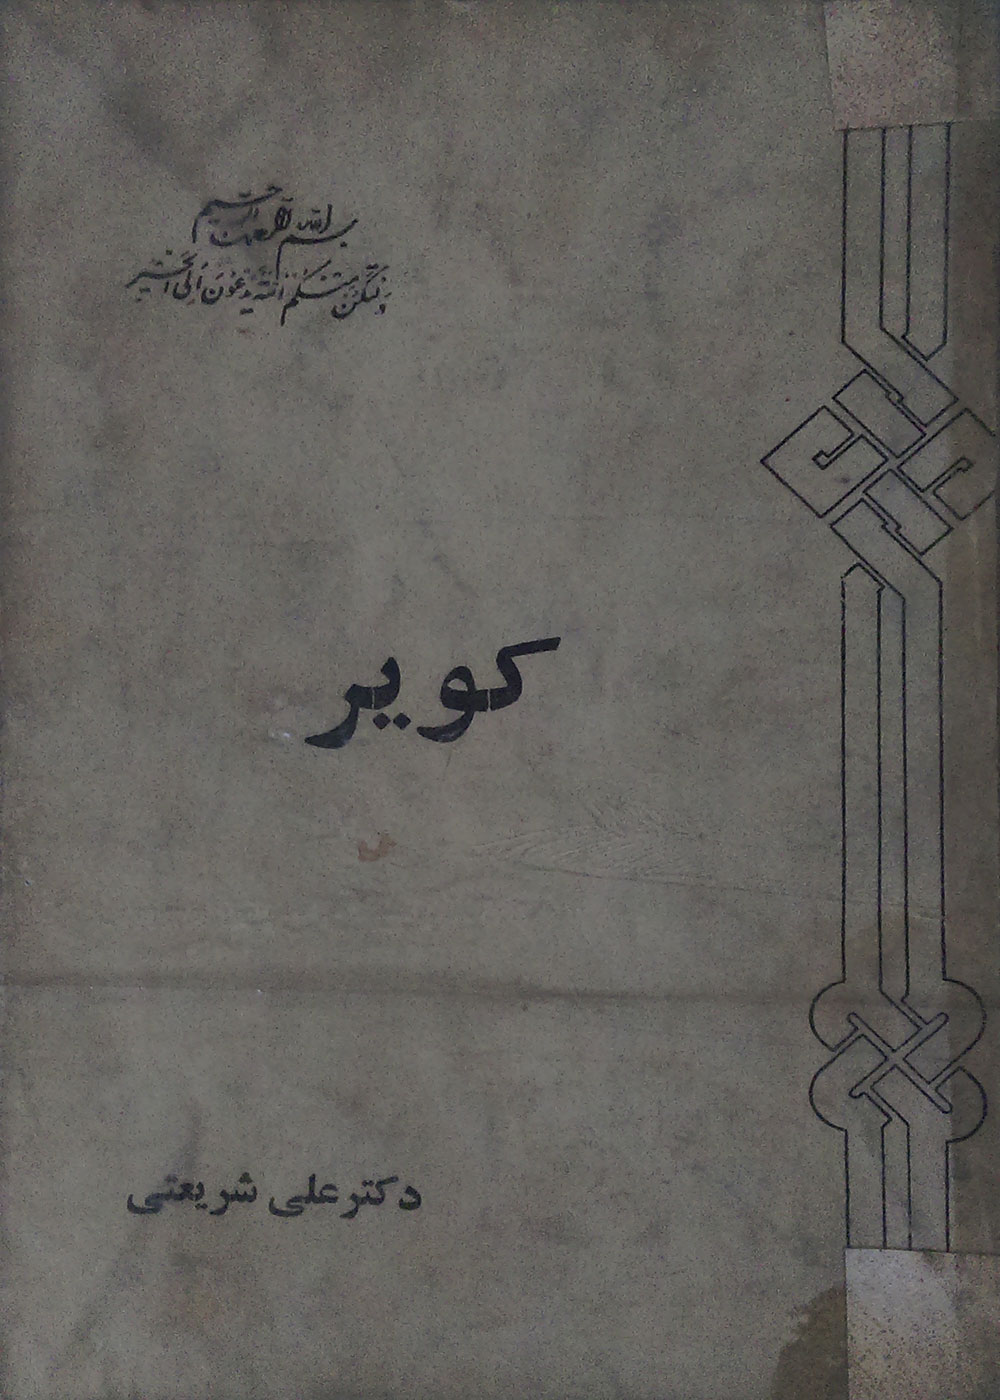 بسم الله الرحمن الرحیم
وَلتَکُن مِنکُم اُمَّة یَدعُونَ اِلَی الخَیر
کویر
دکتر علی شریعتی